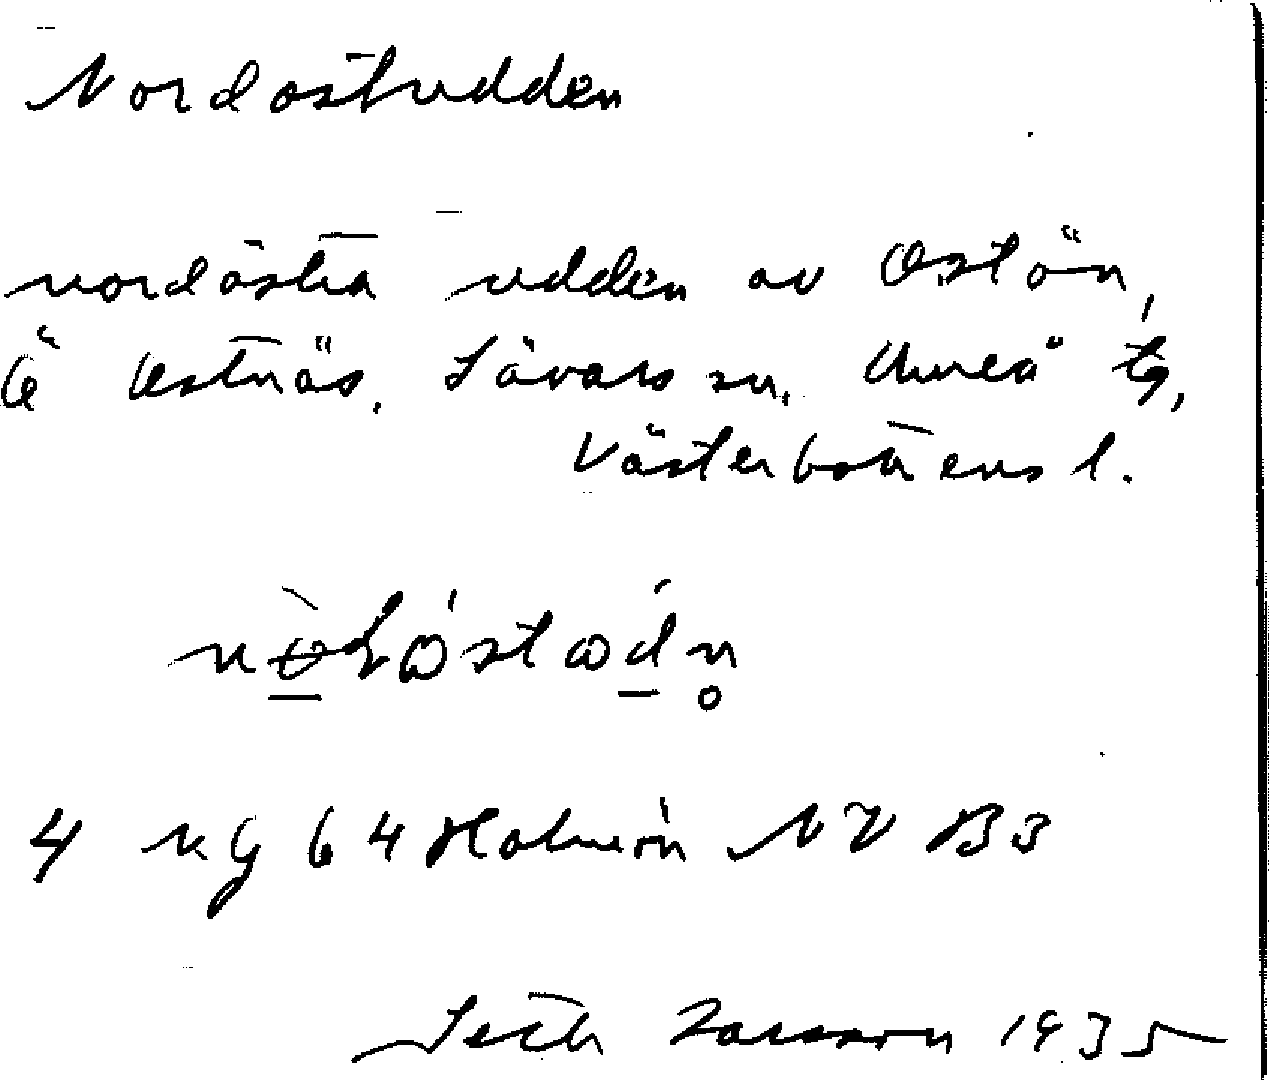 Nordostudden
nordöstra udden av Ostön,
Ostnäs, Sävars sn, Umeå tg,
Västerbottens l.
4 kg 64 Holmön NV B3
Larsson 1935